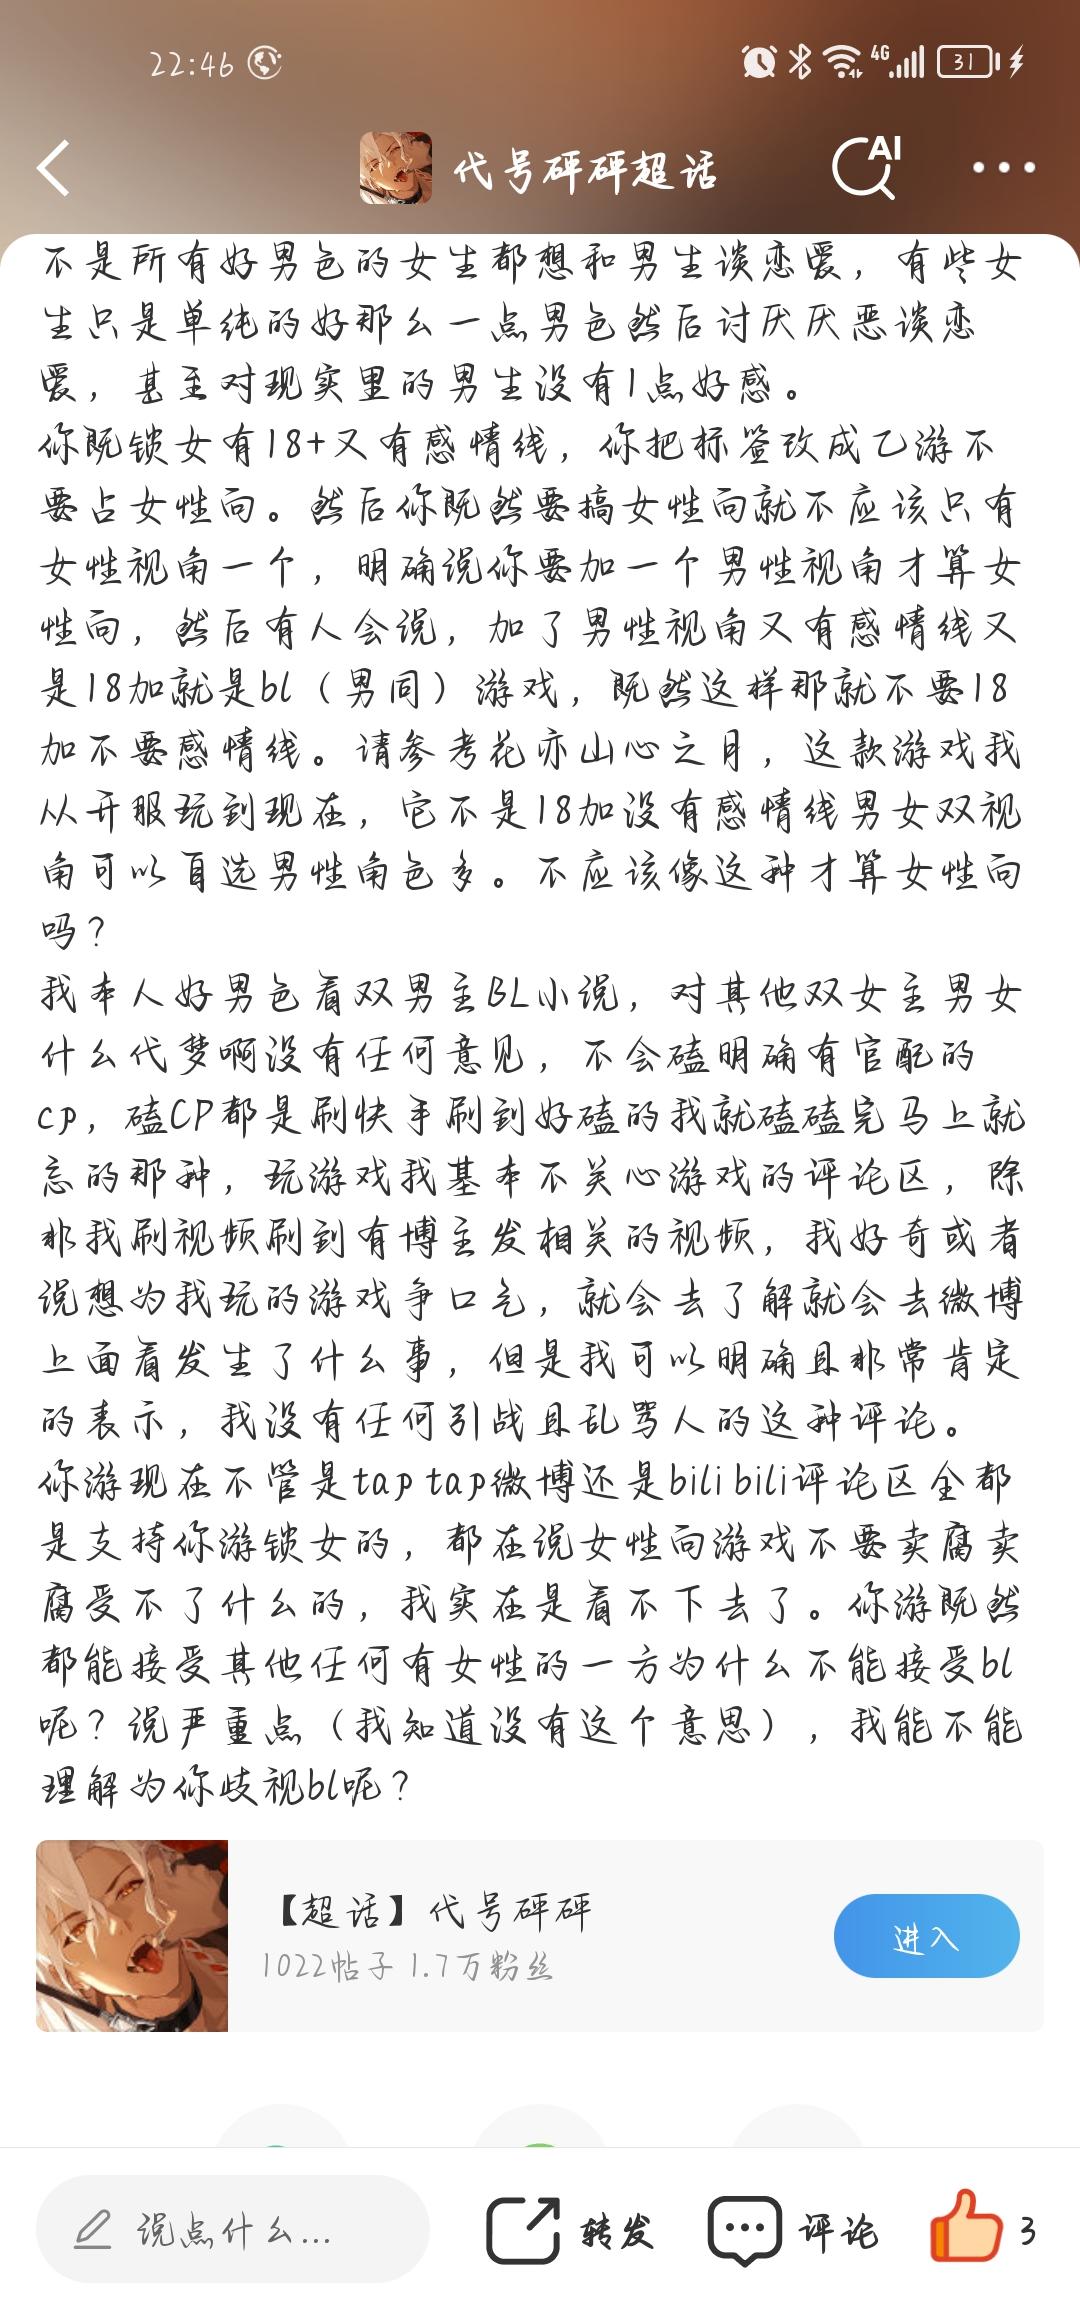 22:46
4G
31
代号砰砰超话
AI
不是所有好男色的女生都想和男生谈恋爱，有些女
生只是单纯的好那么一点男色然后讨厌厌恶谈恋
爱，甚至对现实里的男生没有1点好感。
你既锁女有18+又有感情线，你把标签改成乙游不
要占女性向。然后你既然要搞女性向就不应该只有
女性视角一个，明确说你要加一个男性视角才算女
性向，然后有人会说，加了男性视角又有感情线又
是18加就是bl（男同）游戏，既然这样那就不要18
加不要感情线。请参考花亦山心之月，这款游戏我
从开服玩到现在，它不是18加没有感情线男女双视
角可以自选男性角色多。不应该像这种才算女性向
吗？
我本人好男色看双男主BL小说，对其他双女主男女
什么代梦啊没有任何意见，不会磕明确有官配的
cp，磕CP都是刷快手刷到好磕的我就磕磕完马上就
忘的那种，玩游戏我基本不关心游戏的评论区，除
非我刷视频刷到有博主发相关的视频，我好奇或者
说想为我玩的游戏争口气，就会去了解就会去微博
上面看发生了什么事，但是我可以明确且非常肯定
的表示，我没有任何引战且乱骂人的这种评论。
你游现在不管是tap tap微博还是bili bili评论区全都
是支持你游锁女的，都在说女性向游戏不要卖腐卖
腐受不了什么的，我实在是看不下去了。你游既然
都能接受其他任何有女性的一方为什么不能接受bl
呢？说严重点（我知道没有这个意思），我能不能
理解为你歧视bl呢？
【超话】代号砰砰
1022帖子 1.7万粉丝
进入
说点什么...
转发
评论
3